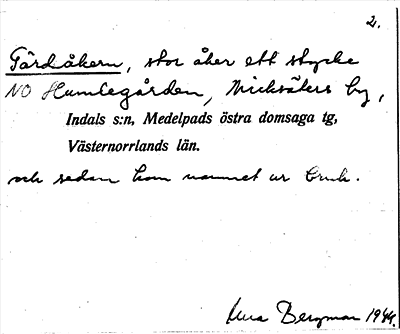 2.
Gärdåkern, stor åker ett stycke
NO Humlegården, by,
Indals s:n, Medelpads östra domsaga tg,
Västernorrlands län.
och sedan kom namnet ur bruk.
Bergman 1944.